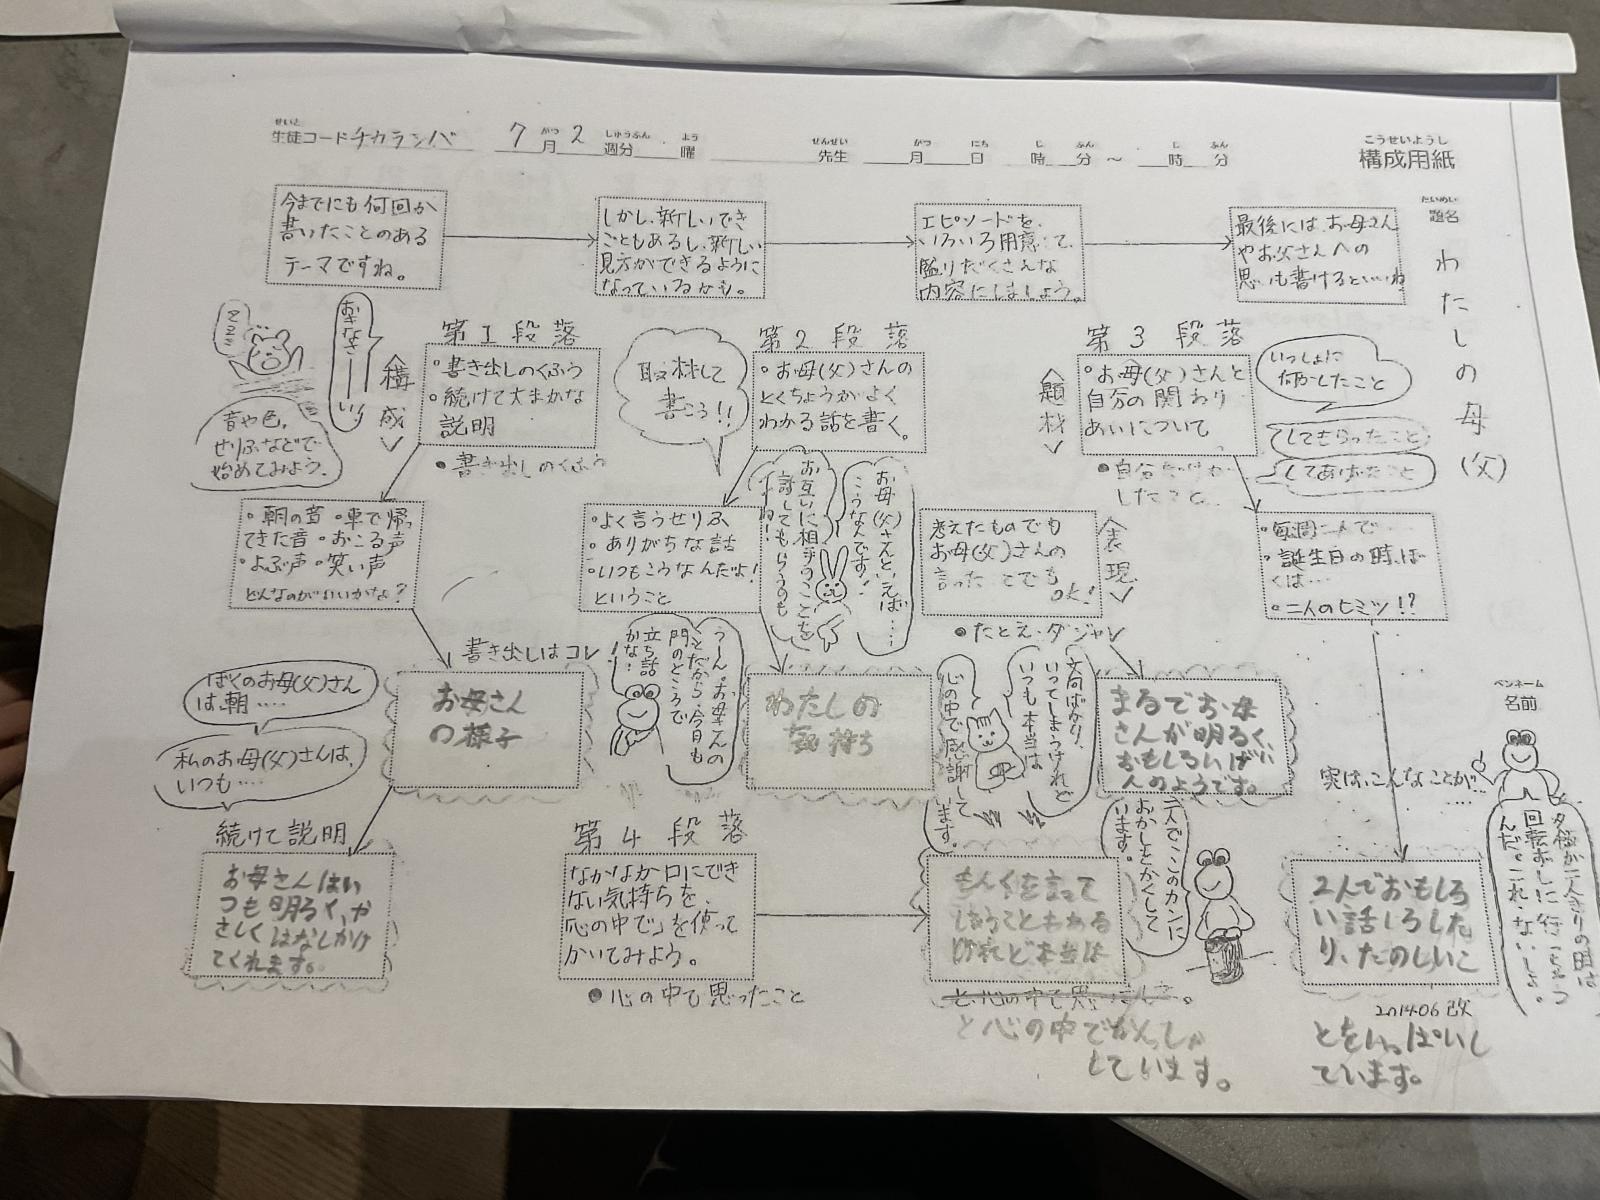 生徒コード チカラシバ 7月2週分 曜 先生 月 日 時 分 ～ 時 分
せいと がつ しゅうぶん よう せんせい がつ にち じ ふん じ ふん
こうせいようし
構成用紙
だいめい
題名
わたしの母(父)
今までにも何回か
書いたことのある
テーマですね。
しかし、新しいでき
ごともあるし、新しい
見方ができるように
なっているかも。
エピソードを、
いろいろ用意して、
盛りだくさんな
内容にしましょう。
最後には、お母さん
やお父さんへの
思いも書けるといいね
おきなさーーい
音や色、
せりふなどで
始めてみよう。
〈構成〉
第1段落
・書き出しのくふう
・続けて大まかな
説明
●書き出しのくふう
・朝の音 ・車で帰っ
てきた音 ・おこる声
・よぶ声 ・笑い声
どんなのがいいかな?
書き出しはコレ
ぼくのお母(父)さん
は、朝……
私のお母(父)さんは、
いつも……
お母さん
の様子
続けて説明
お母さんはい
つも明るく、や
さしくはなしかけ
てくれます。
取材して
書こう!!
第2段落
・お母(父)さんの
とくちょうがよく
わかる話を書く。
・よく言うせりふ
・ありがちな話
・いつもこうなんだよ!
ということ
お母(父)さんといえば……
こうなんです!
お互いに相手のことを
話してもらうのも
いいね!
うーん。お母さんの
ことだから、今日も
門のところで
立ち話
かな!
わたしの
気持ち
〈題材〉
第3段落
・お母(父)さんと
自分の関わり
あいについて
いっしょに
何かしたこと
してもらったこと
してあげたこと
・毎週二人で…
・誕生日の時、ぼ
くは…
・二人のヒミツ!?
〈表現〉
考えたものでも
お母(父)さんの
言ったことでも
OK!
●たとえ・ダジャレ
まるでお母
さんが明るく、
人のようです。
文句ばかり、
いってしまうけれど
いつも本当は
心の中で感謝して
います。
第4段落
なかなか口にでき
ない気持ちを、
心の中で」を使って
かいてみよう。
●心の中で思ったこと
もんくを言って
しまうこともある
けれど本当は
と心の中でかんしゃ
しています。
二人でこのカンに
おかしをかくして
います。
ペンネーム
名前
実は、こんなことが…
夕飯が二人きりの時は
回転ずしに行っちゃう
んだ。これ、ないしょ。
2人でおもしろ
い話しをした
り、たのしいこ
とをいっぱいし
ています。
2014.06改